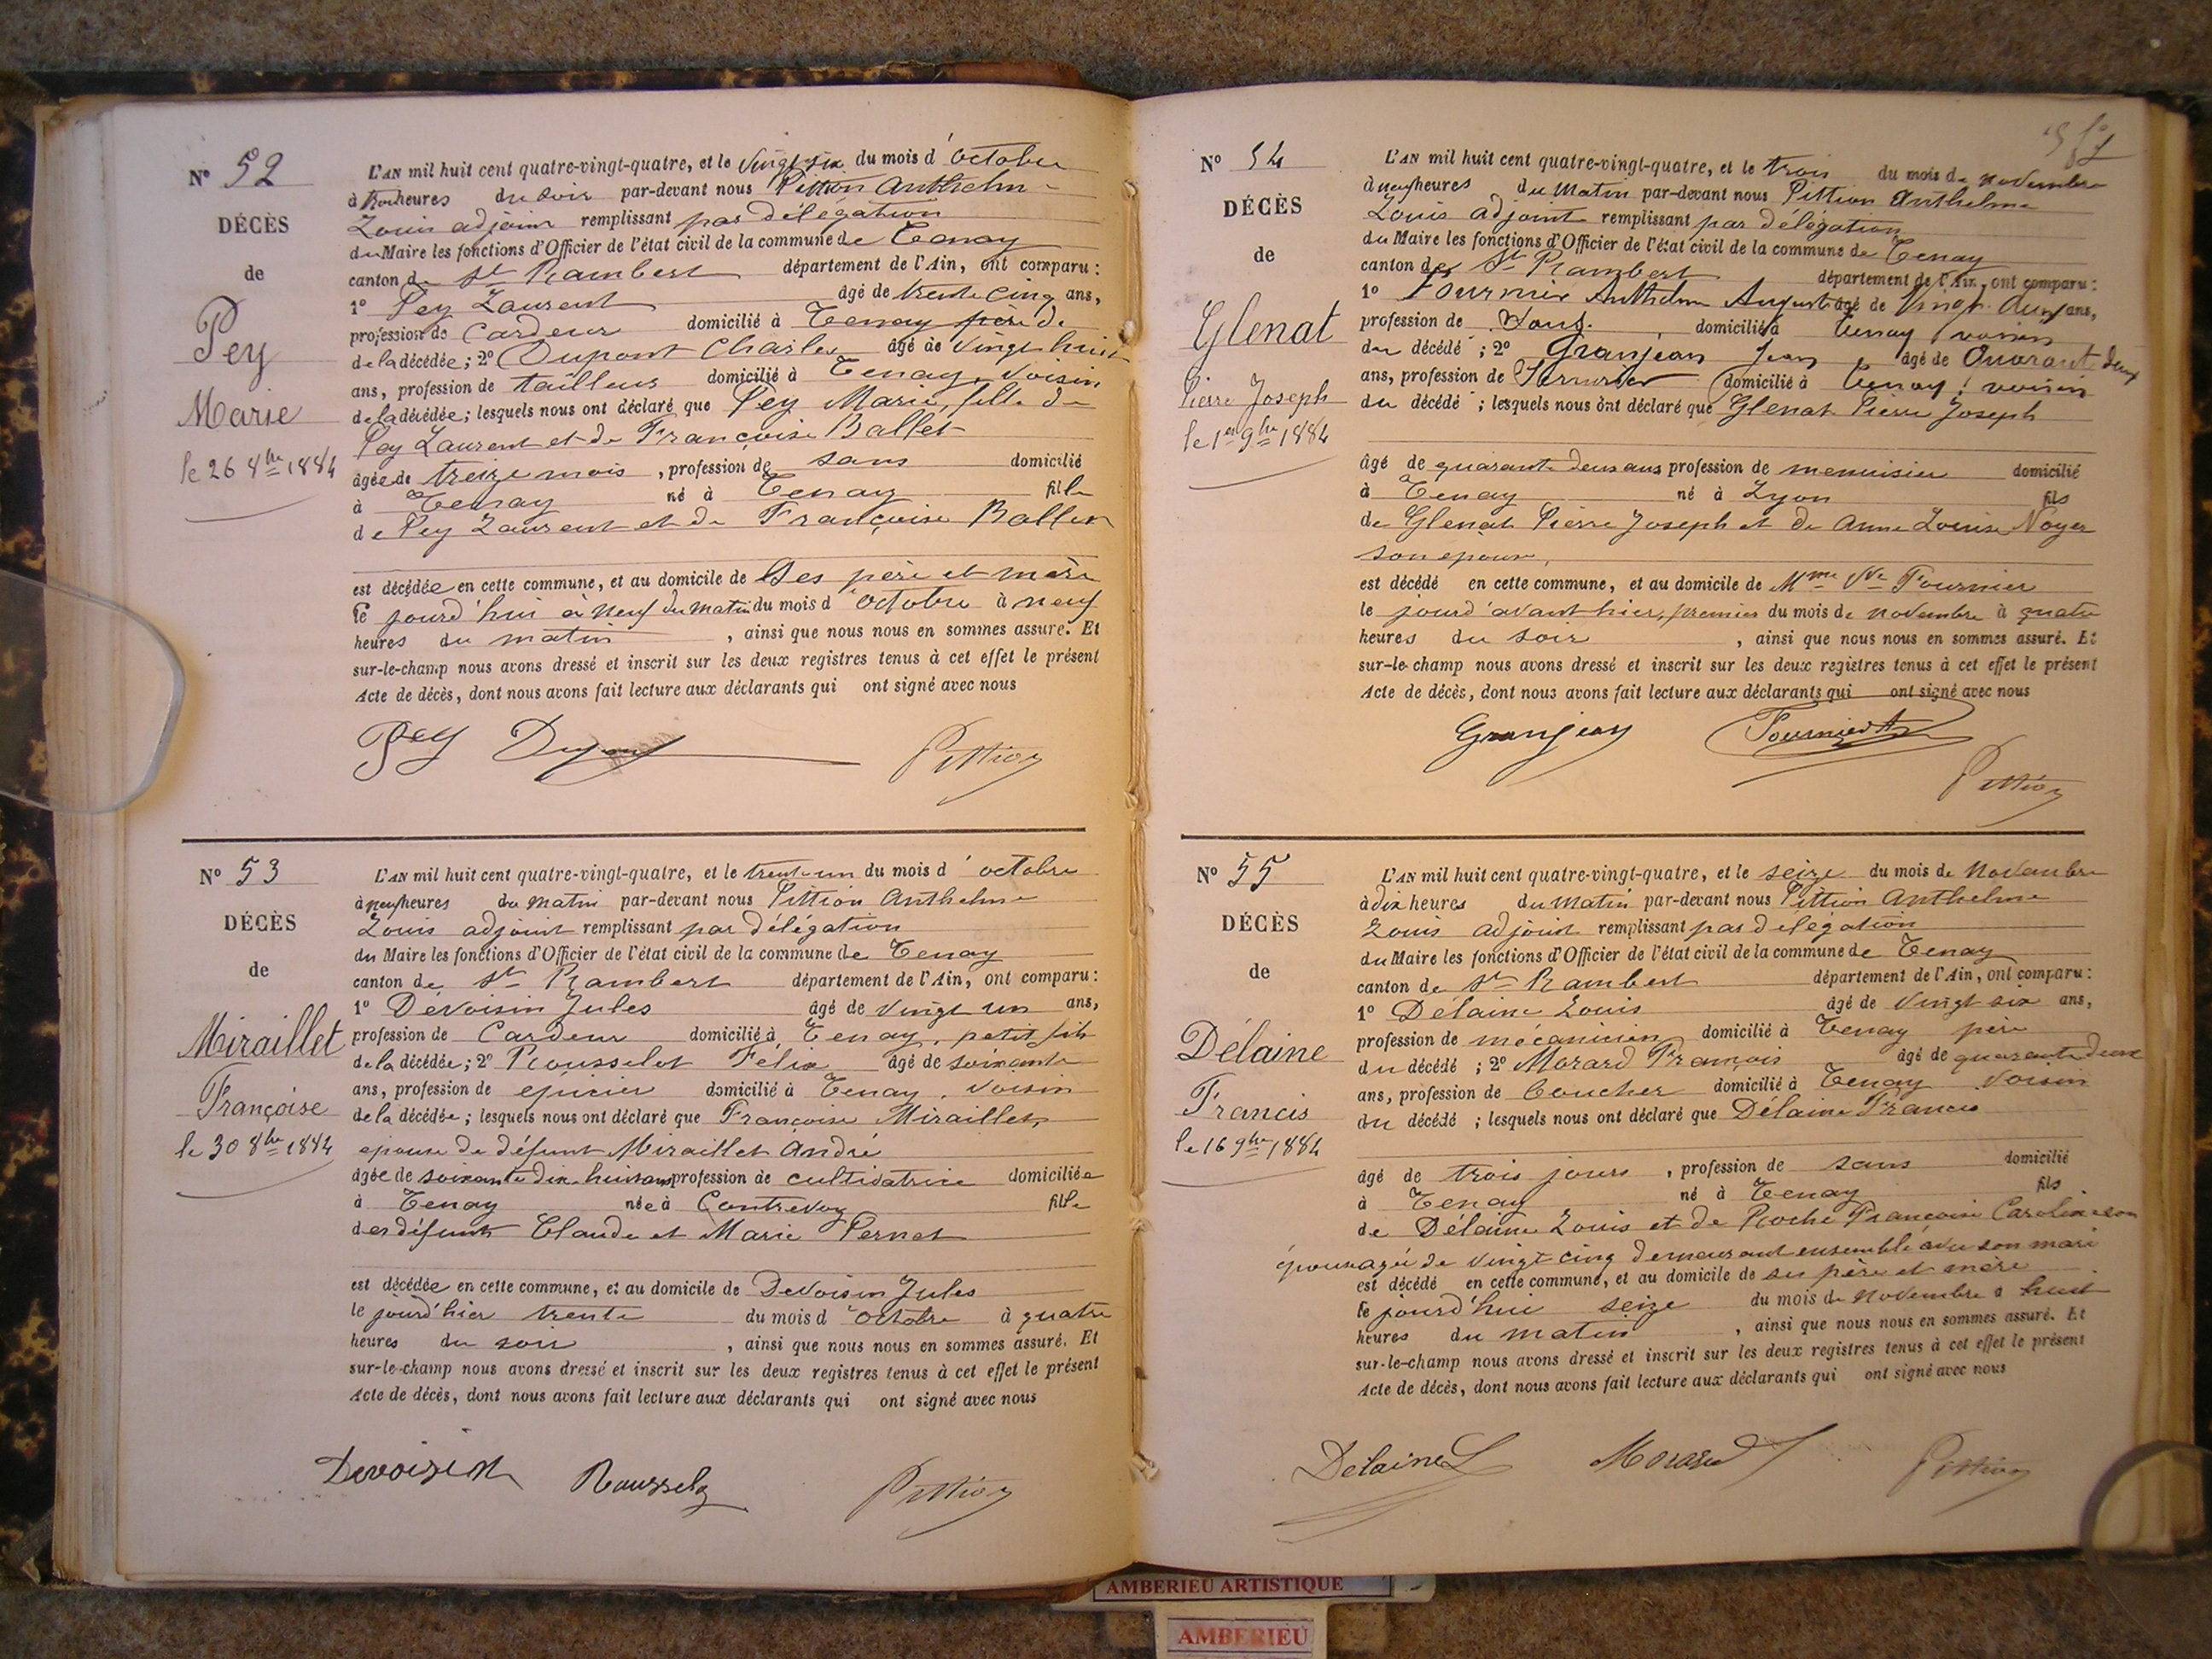 N° 52
DÉCÈS
de
Pey
Marie
le 26 8bre 1884
L'AN mil huit cent quatre-vingt-quatre, et le vingt six du mois d'octobre
à trois heures du soir par-devant nous Pittion Anthelm-
Louis adjoint remplissant par délégation
du Maire les fonctions d'Officier de l'état civil de la commune de Tenay
canton de St Rambert département de l'Ain, ont comparu :
1° Pey Laurent âgé de trente cinq ans,
profession de Cardeur domicilié à Tenay père de
de la décédée ; 2° Dupont Charles âgé de vingt huit
ans, profession de tailleur domicilié à Tenay, voisin
de la décédée ; lesquels nous ont déclaré que Pey Marie, fille de
Pey Laurent et de Françoise Ballet
âgée de treize mois, profession de sans domicilié
à Tenay né à Tenay fille
de Pey Laurent et de Françoise Ballet
est décédée en cette commune, et au domicile de ses père et mère
le jourd'hui à neuf du matin du mois d'octobre à neuf
heures du matin, ainsi que nous nous en sommes assuré. Et
sur-le-champ nous avons dressé et inscrit sur les deux registres tenus à cet effet le présent
Acte de décès, dont nous avons fait lecture aux déclarants qui ont signé avec nous
Pey Dupont Pittion
N° 53
DÉCÈS
de
Miraillet
Françoise
le 30 8bre 1884
L'AN mil huit cent quatre-vingt-quatre, et le trente-un du mois d'octobre
à neuf heures du matin par-devant nous Pittion Anthelme
Louis adjoint remplissant par délégation
du Maire les fonctions d'Officier de l'état civil de la commune de Tenay
canton de St Rambert département de l'Ain, ont comparu :
1° Devoisin Jules âgé de vingt un ans,
profession de Cardeur domicilié à Tenay, petit fils
de la décédée ; 2° Rousselet Felix âgé de soixante
ans, profession de epicier domicilié à Tenay, voisin
de la décédée ; lesquels nous ont déclaré que Françoise Miraillet,
epouse de défunt Miraillet André
âgée de soixante dix huit ans profession de cultivatrice domiciliée
à Tenay née à Contrevoz fille
des défunts Claude et Marie Pernet
est décédée en cette commune, et au domicile de Devoisin Jules
le jourd'hier trente du mois d'octobre à quatre
heures du soir, ainsi que nous nous en sommes assuré. Et
sur-le-champ nous avons dressé et inscrit sur les deux registres tenus à cet effet le présent
Acte de décès, dont nous avons fait lecture aux déclarants qui ont signé avec nous
Devoisin Rousselet Pittion
N° 54
DÉCÈS
de
Glenat
Pierre Joseph
le 1er 9bre 1884
L'AN mil huit cent quatre-vingt-quatre, et le trois du mois de novembre
à neuf heures du matin par-devant nous Pittion Anthelme
Louis adjoint remplissant par délégation
du Maire les fonctions d'Officier de l'état civil de la commune de Tenay
canton de St Rambert département de l'Ain, ont comparu :
1° Fournier Anthelme August âgé de vingt deux ans,
profession de sans domicilié à Tenay voisin
du décédé ; 2° Granjean Jean âgé de Quarante deux
ans, profession de Serrurier domicilié à Tenay, voisin
du décédé ; lesquels nous ont déclaré que Glenat Pierre Joseph
âgé de quarante deux ans profession de menuisier domicilié
à Tenay né à Lyon fils
de Glenat Pierre Joseph et de Anne Louise Noyer
son epouse,
est décédé en cette commune, et au domicile de Mme Vve Fournier
le jourd'avant hier, premier du mois de novembre à quatre
heures du soir, ainsi que nous nous en sommes assuré. Et
sur-le-champ nous avons dressé et inscrit sur les deux registres tenus à cet effet le présent
Acte de décès, dont nous avons fait lecture aux déclarants qui ont signé avec nous
Granjean Fournier A Pittion
N° 55
DÉCÈS
de
Délaine
Francis
le 16 9bre 1884
L'AN mil huit cent quatre-vingt-quatre, et le seize du mois de Novembre
à dix heures du matin par-devant nous Pittion Anthelme
Louis adjoint remplissant par délégation
du Maire les fonctions d'Officier de l'état civil de la commune de Tenay
canton de St Rambert département de l'Ain, ont comparu :
1° Délaine Louis âgé de vingt six ans,
profession de mécanicien domicilié à Tenay père
du décédé ; 2° Morard François âgé de quarante deux
ans, profession de boucher domicilié à Tenay voisin
du décédé ; lesquels nous ont déclaré que Délaine Francis
âgé de trois jours, profession de sans domicilié
à Tenay né à Tenay fils
de Délaine Louis et de Roche Françoise Caroline son
épouse agée de vingt cinq demeurant ensemble avec son mari
est décédé en cette commune, et au domicile de ses père et mère
le jourd'hui seize du mois de novembre à huit
heures du matin, ainsi que nous nous en sommes assuré. Et
sur-le-champ nous avons dressé et inscrit sur les deux registres tenus à cet effet le présent
Acte de décès, dont nous avons fait lecture aux déclarants qui ont signé avec nous
Delaine L Morard Pittion
AMBERIEU ARTISTIQUE
AMBERIEU